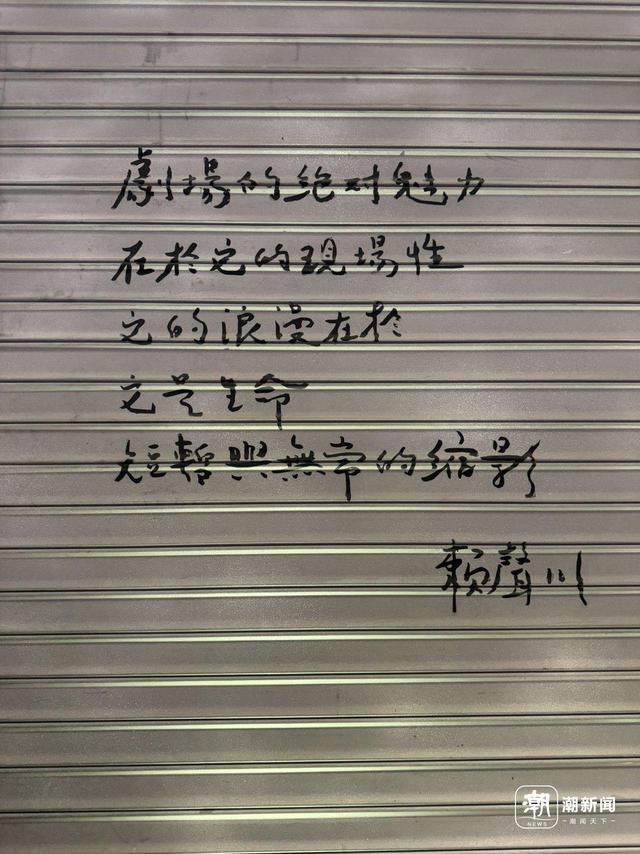 劇場的絕对魅力
在於它的現場性
它的浪漫在於
它是生命
短暫與無常的縮影
賴聲川
潮 NEWS 潮新闻
潮闻天下